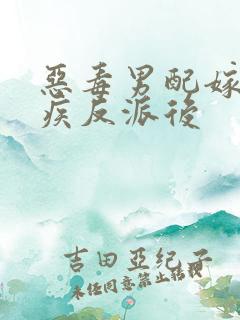 惡毒男配嫁
疾反派後
吉田亞紀子
未经同意禁止转载